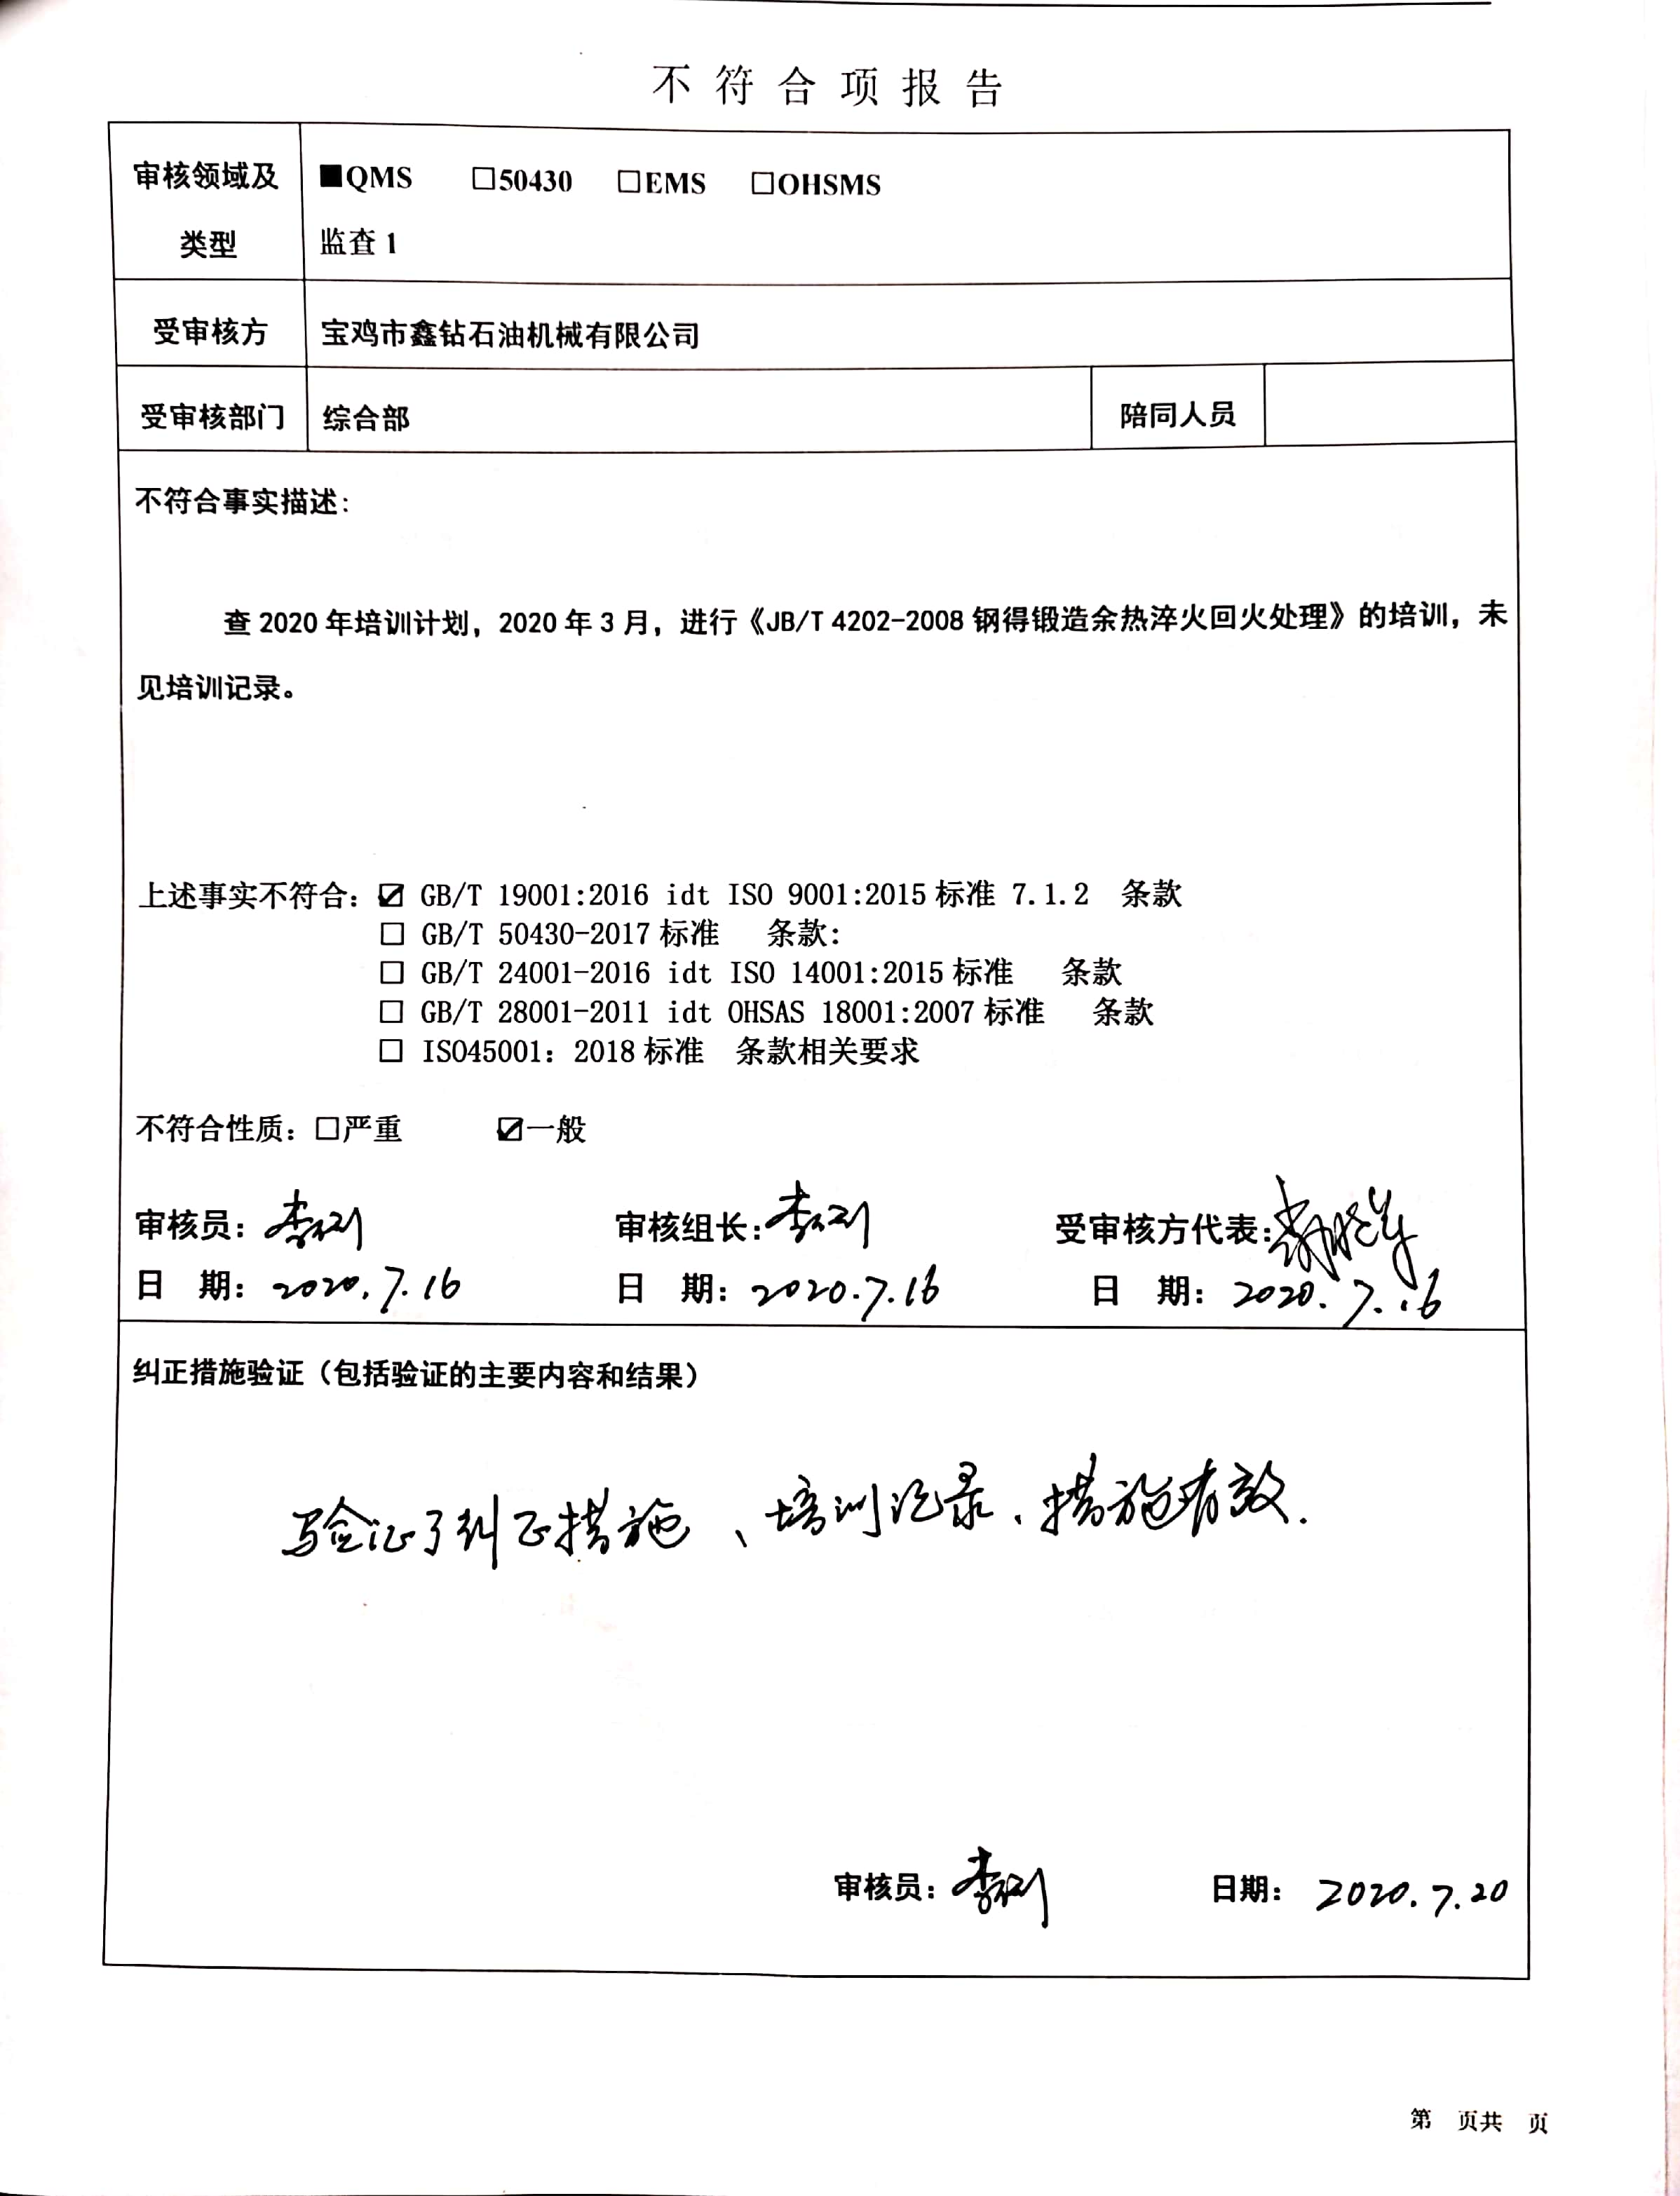 不符合项报告
审核领域及类型
■QMS □50430 □EMS □OHSMS
监查 1
受审核方 宝鸡市鑫钻石油机械有限公司
受审核部门 综合部 陪同人员
不符合事实描述:
查 2020 年培训计划，2020 年 3 月，进行《JB/T 4202-2008 钢得锻造余热淬火回火处理》的培训，未
见培训记录。
上述事实不符合: ☑ GB/T 19001:2016 idt ISO 9001:2015 标准 7.1.2 条款
□ GB/T 50430-2017 标准 条款:
□ GB/T 24001-2016 idt ISO 14001:2015 标准 条款
□ GB/T 28001-2011 idt OHSAS 18001:2007 标准 条款
□ ISO45001: 2018 标准 条款相关要求
不符合性质: □严重 ☑一般
审核员: 审核组长: 受审核方代表:
日 期: 2020.7.16 日 期: 2020.7.16 日 期: 2020.7.16
纠正措施验证（包括验证的主要内容和结果）
验证了纠正措施、培训记录、措施有效.
审核员: 日期: 2020.7.20
第 页共 页